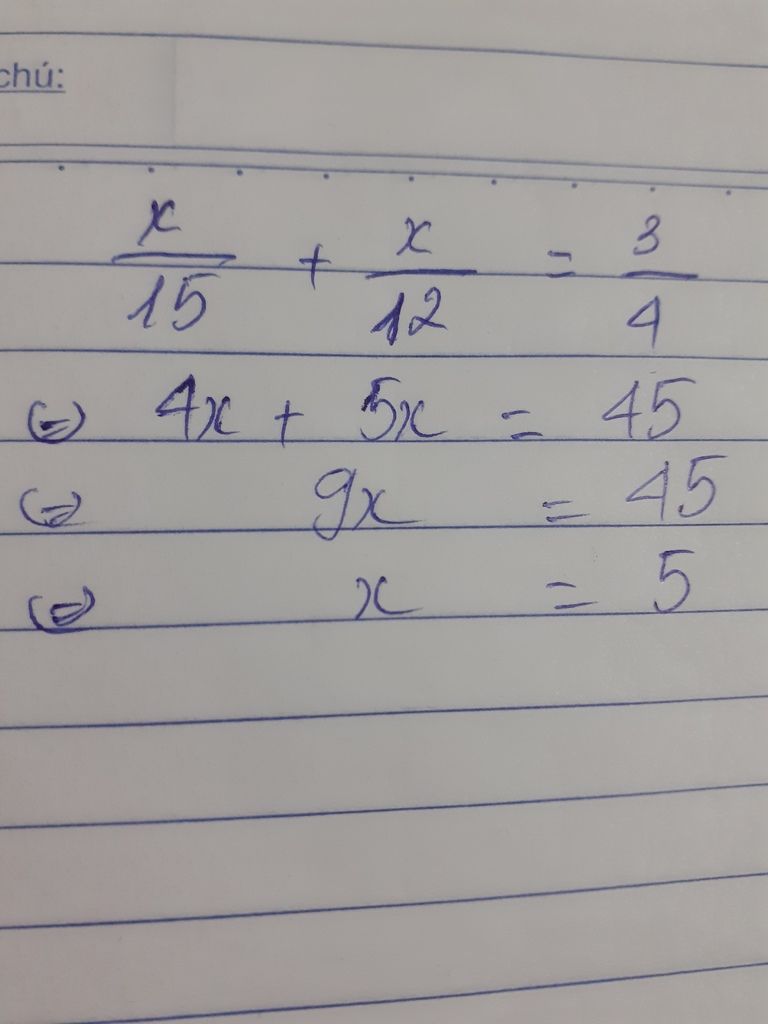 chú:
x/15 + x/12 = 3/4
(=) 4x + 5x = 45
(=) 9x = 45
(=) x = 5